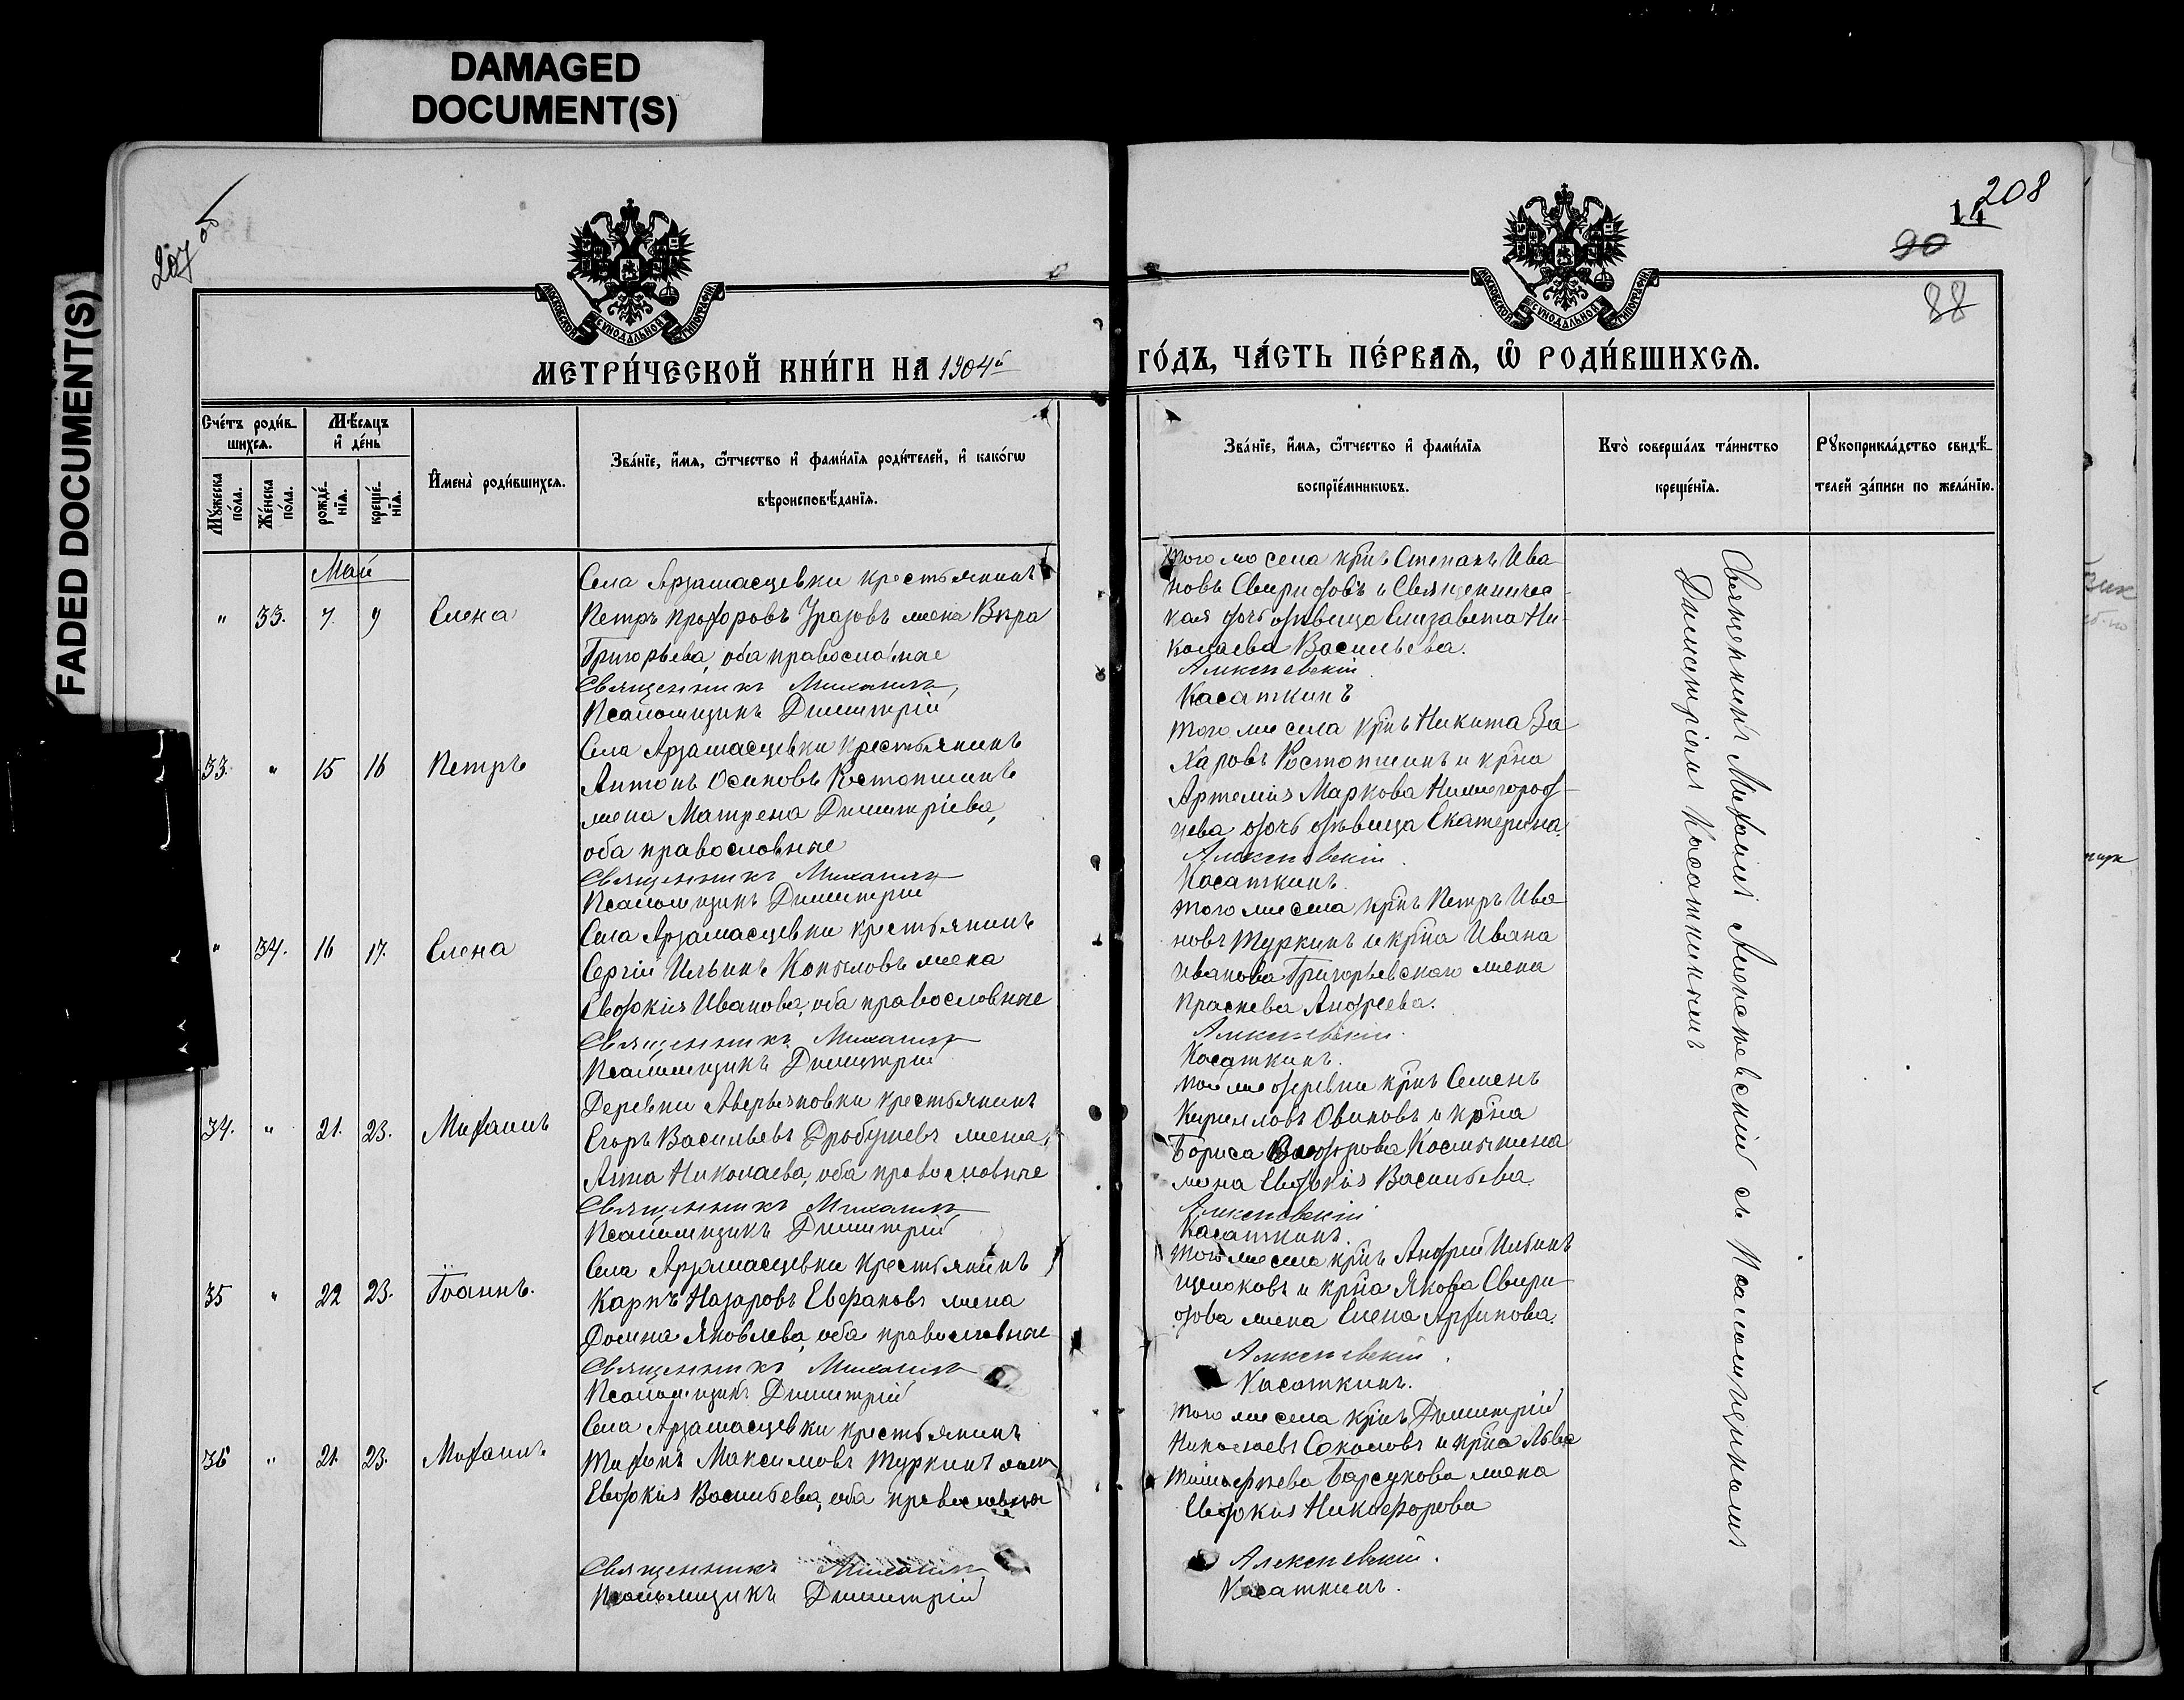 DAMAGED
DOCUMENT(S)
FADED DOCUMENT(S)
207 об
208
14
90
88
МОСКОВСКОЙ СѴНОДАЛЬНОЙ ТИПОГРАФІИ
МОСКОВСКОЙ СѴНОДАЛЬНОЙ ТИПОГРАФІИ
МЕТРИ́ЧЕСКОЙ КНИ́ГИ НА 1904й
ГО́ДЪ, ЧА́СТЬ ПЕ́РВАѦ, Ѡ҆ РОДИ́ВШИХСѦ.
Сче́тъ роди́в-
шихсѧ.
Мꙋ́жеска
по́ла.
Же́нска
по́ла.
Мѣ́сѧцъ
и҆ де́нь
рожде́-
нїѧ.
креще́-
нїѧ.
И҆мена̀ роди́вшихсѧ.
Зва́нїе, и҆́мѧ, ѻ҆́тчество и҆ фами́лїѧ роди́телей, и҆ како́гѡ
вѣроисповѣ́данїѧ.
Зва́нїе, и҆́мѧ, ѻ҆́тчество и҆ фами́лїѧ
воспрїе́мникѡвъ.
Кто̀ соверша́лъ та́инство
креще́нїѧ.
Рꙋкоприкла́дство свидѣ́-
телей за́писи по жела́нїю.
Май
" 33. 7 9 Елена
Села Арзамасцевки крестьянинъ
Петръ Прохоровъ Уразовъ жена Вѣра
Григорьева, оба православные
Священникъ Михаилъ
Псаломщикъ Димитрій
того же села крнъ Степанъ Ива
новъ Свиридовъ и Священничес-
кая дочь дѣвица Елизавета Ни-
колаева Васильева.
Алексѣевскій
Касаткинъ
33 " 15 16 Петръ
Села Арзамасцевки крестьянинъ
Антонъ Осиповъ Ростопшинъ
жена Матрена Димитріева,
оба православные
Священникъ Михаилъ
Псаломщикъ Димитрій
того же села крнъ Никита За
харовъ Ростопшинъ и крна
Артемія Маркова Нижегород-
цева дочь дѣвица Екатерина.
Алексѣевскій.
Касаткинъ.
" 34. 16 17. Елена
Села Арзамасцевки крестьянинъ
Сергій Ильинъ Копыловъ жена
Евдокія Иванова, оба православные
Священникъ Михаилъ
Псаломщикъ Димитрій
того же села крнъ Петръ Ива
новъ Туркинъ и крна Ивана
Иванова Григорьевскаго жена
Праскева Андреева.
Алексѣевскій.
Касаткинъ.
34. " 21. 23. Михаилъ
Деревни Аверьяновки крестьянинъ
Егоръ Васильевъ Дробушевъ жена
Анна Николаева, оба православные
Священникъ Михаилъ
Псаломщикъ Димитрій
той же деревни крнъ Семенъ
Кирилловъ Овиновъ и крна
Бориса Костышена
жена Евдокія Васильева.
Алексѣевскій
Касаткинъ.
35 " 22 23. Іоаннъ.
Села Арзамасцевки крестьянинъ
Карпъ Назаровъ Евфановъ жена
Домна Яковлева, оба православные
Священникъ Михаилъ
Псаломщикъ Димитрій
того же села крнъ Андрей Ильинъ
и крна Якова Свири
дова жена Елена Архипова.
Алексѣевскій.
Касаткинъ.
36 " 21. 23. Михаилъ
Села Арзамасцевки крестьянинъ
Тихонъ Максимовъ Туркинъ жена
Евдокія Васильева, оба православные
Священникъ Михаилъ
Псаломщикъ Димитрій
того же села крнъ Димитрій
Николаевъ Соколовъ и крна Льва
Тимофѣева Барсукова жена
Евдокія Никифорова
Алексѣевскій.
Касаткинъ.
Священникъ Михаилъ Алексѣевскій съ Псаломщикомъ
Димитріемъ Касаткинымъ